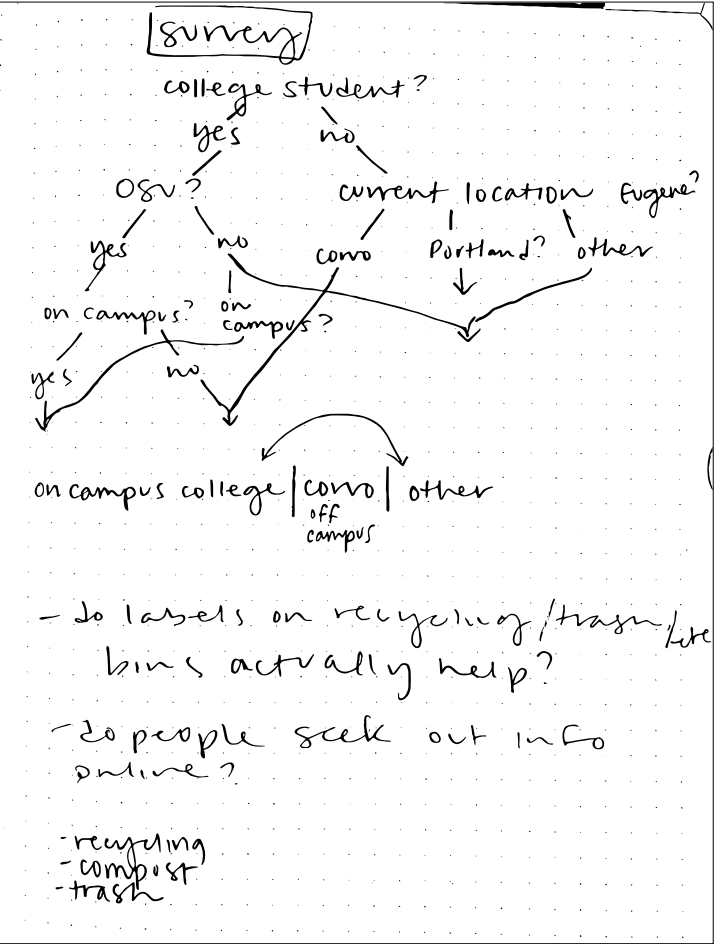 survey
college student?
yes no
OSU? current location Eugene?
yes no corvo Portland? other
on campus? on campus?
yes no
on campus college | corvo | other
off
campus
- do labels on recycling/trash/etc
bins actually help?
- do people seek out info
online?
- recycling
- compost
- trash